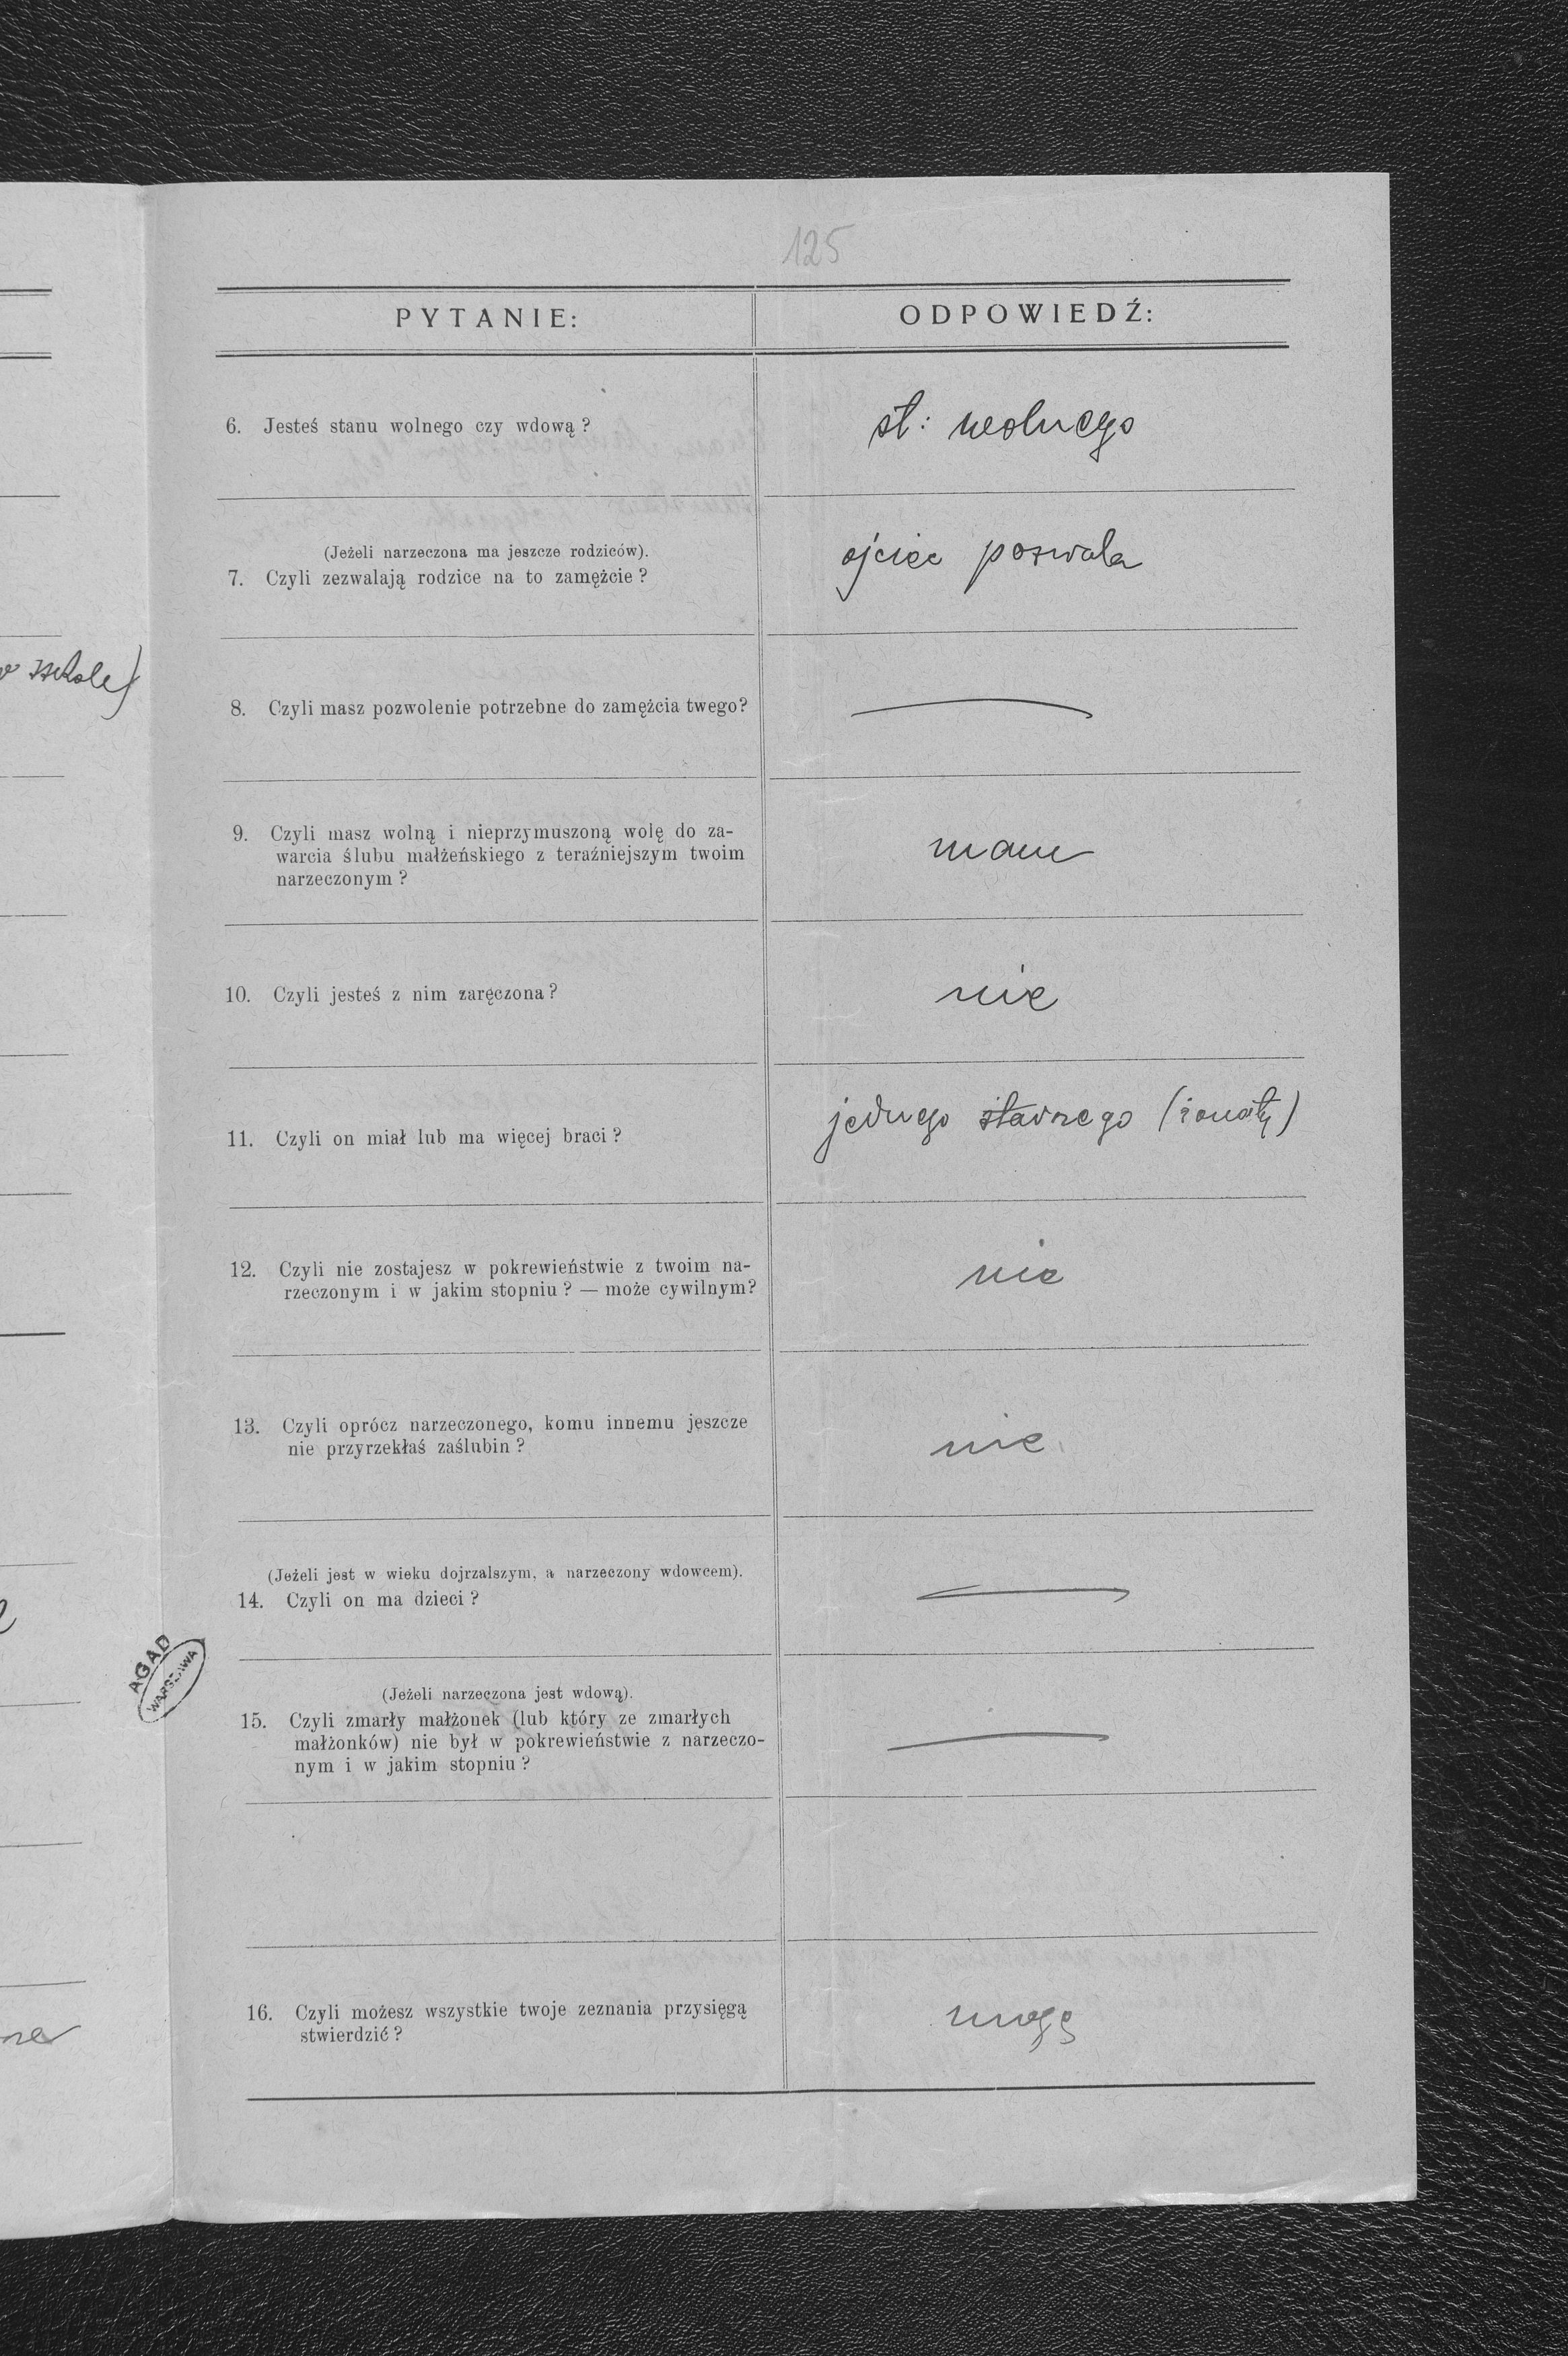 125
PYTANIE:
ODPOWIEDŹ:
6. Jesteś stanu wolnego czy wdową?
st: wolnego
(Jeżeli narzeczona ma jeszcze rodziców).
7. Czyli zezwalają rodzice na to zamężcie?
ojciec pozwala
w szkole)
8. Czyli masz pozwolenie potrzebne do zamężcia twego?
9. Czyli masz wolną i nieprzymuszoną wolę do za-
warcia ślubu małżeńskiego z teraźniejszym twoim
narzeczonym?
mam
10. Czyli jesteś z nim zaręczona?
nie
11. Czyli on miał lub ma więcej braci?
jednego starszego (żonaty)
12. Czyli nie zostajesz w pokrewieństwie z twoim na-
rzeczonym i w jakim stopniu? — może cywilnym?
nie
13. Czyli oprócz narzeczonego, komu innemu jeszcze
nie przyrzekłaś zaślubin?
nie
(Jeżeli jest w wieku dojrzalszym, a narzeczony wdowcem).
14. Czyli on ma dzieci?
AGAD
WARSZAWA
(Jeżeli narzeczona jest wdową).
15. Czyli zmarły małżonek (lub który ze zmarłych
małżonków) nie był w pokrewieństwie z narzeczo-
nym i w jakim stopniu?
16. Czyli możesz wszystkie twoje zeznania przysięgą
stwierdzić?
mogę